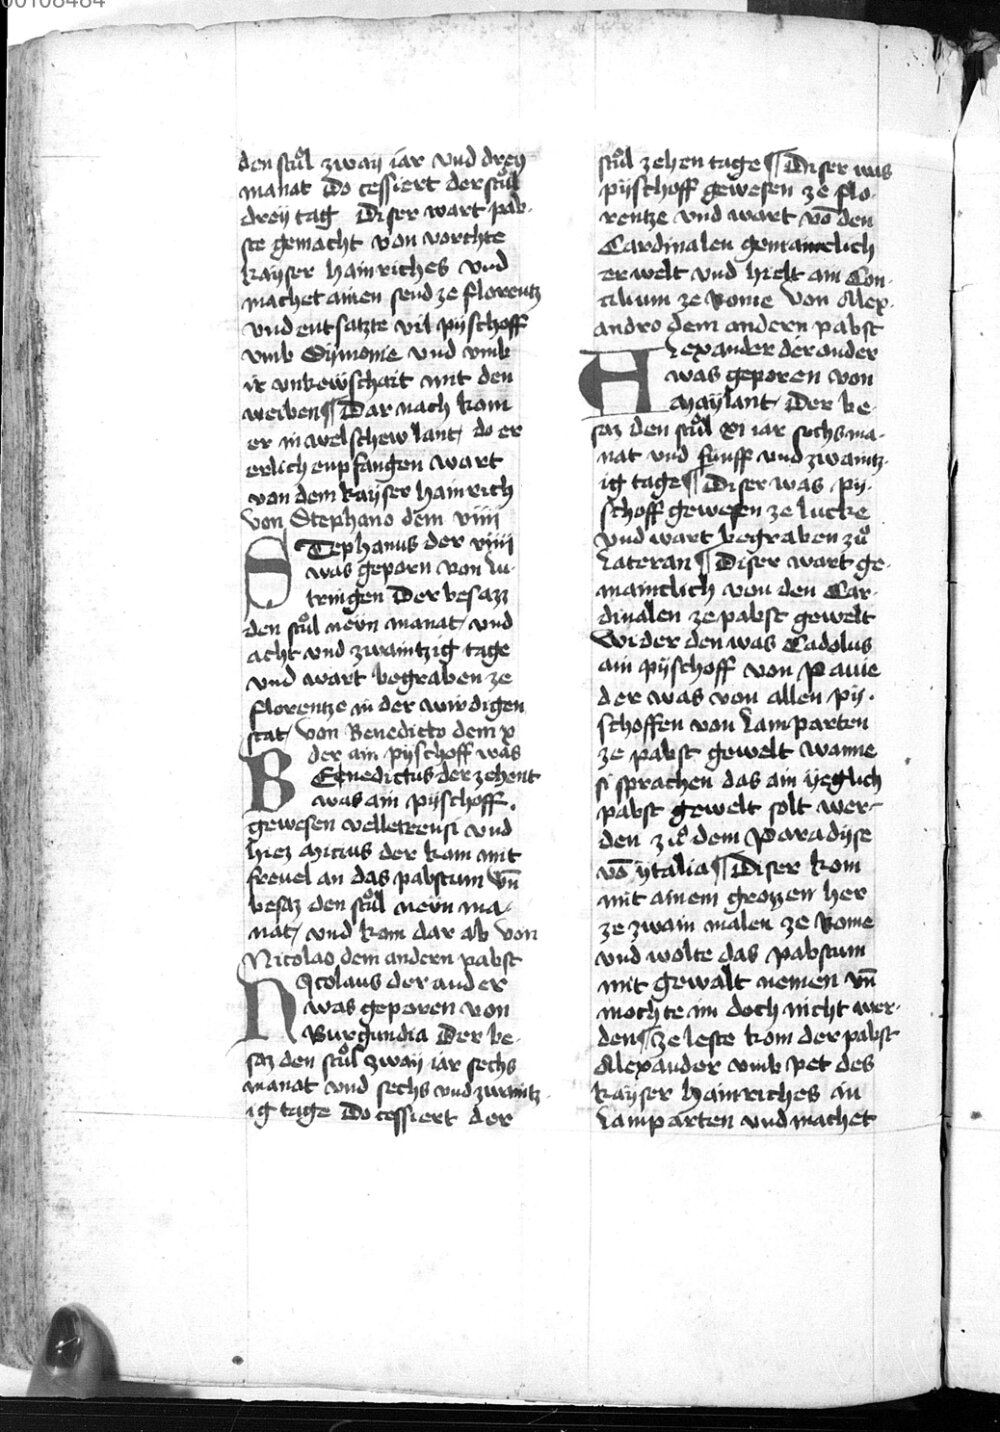 00108484
den stuͦl zwaÿ iar vnd dreÿ
manat Do cessiert der stuͦl
dreÿ tag Diser wart pab-
ste gemacht von vorchte
kaÿser hainriches vnd
machet ainen send ze florentz
vnd entsatzte vil pÿschoff
vmb Sÿmonie vnd vmb
ir vnkewschait mit den
weiben ¶ Dar nach kom
er in welschew lant do er
erlich enpfangen wart
von dem kaÿser hainrich
von Stephano dem viiii
STephanus der viiii
was geporn von lu-
tringen Der besazz
den stuͦl newn manat vnd
acht vnd zwaintzig tage
vnd wart begraben ze
florentze in der wirdigen
stat von Benedicto dem x
der ain pÿschoff was
BEnedictus der zehent
was ain pÿschoff
gewesen velletrensi vnd
hiez Micius der kam mit
frevel an das pabstum vn̄
besaz den stuͦl newn ma-
nat vnd kom dar ab von
Nicolao dem andern pabst
NIcolaus der ander
was geporen von
Burgundia Der be-
saz den stuͦl zwaÿ iar sechs
manat vnd sechs vnd zwaintz-
ig tage Do cessiert der
stuͦl zehen tage ¶ Diser was
pÿschoff gewesen ze flo-
rentze vnd wart vō den
Cardinalen gemainclich
erwelt vnd hielt ain Con-
cilium ze Rome von Alex-
andro dem andern pabst
ALexander der ander
was geporen von
Maÿlant Der be-
saz den stuͦl xi iar sechs ma-
nat vnd funff vnd zwaintz-
ig tage ¶ Diser was pÿ-
schoff gewesen ze lucke
vnd wart begraben zuͦ
Lateran ¶ Diser wart ge-
mainclich von den Car-
dinalen ze pabst gewelt
wider den was Cadolus
ain pÿschoff von Pauie
der was von allen pÿ-
schoffen von Lamparten
ze pabst gewelt wanne
si sprachen das ain ÿeglich
pabst gewelt solt wer-
den zuͦ dem Paradÿse
vō ÿtalia ¶ Diser kom
mit ainem grozzen her
ze zwain malen ze Rome
vnd wolte das pabstum
mit gewalt nemen vn̄
mochte im doch nicht wer-
den ¶ ze leste kom der pabst
Alexander vmb pet des
kaÿser hainriches in
Lamparten vnd machet